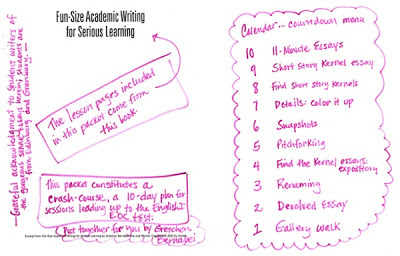 Fun-Size Academic Writing
for Serious Learning
Grateful acknowledgment to student writers of
the gorgeous essays herein; students are
from Edinburg and Greenburg.
The lesson pages included
in this packet come from
this book.
This packet constitutes a
crash-course, a 10-day plan for
sessions leading up to the English I
EOC test.
Put together for you by Gretchen
Bernabei
Calendar... countdown menu
10 11-Minute Essays
9 Short Story Kernel essay
8 Find short story kernels
7 Details: color it up
6 Snapshots
5 Pitchforking
4 Find the Kernel essays:
expository
3 Renaming
2 Devolved Essay
1 Gallery walk